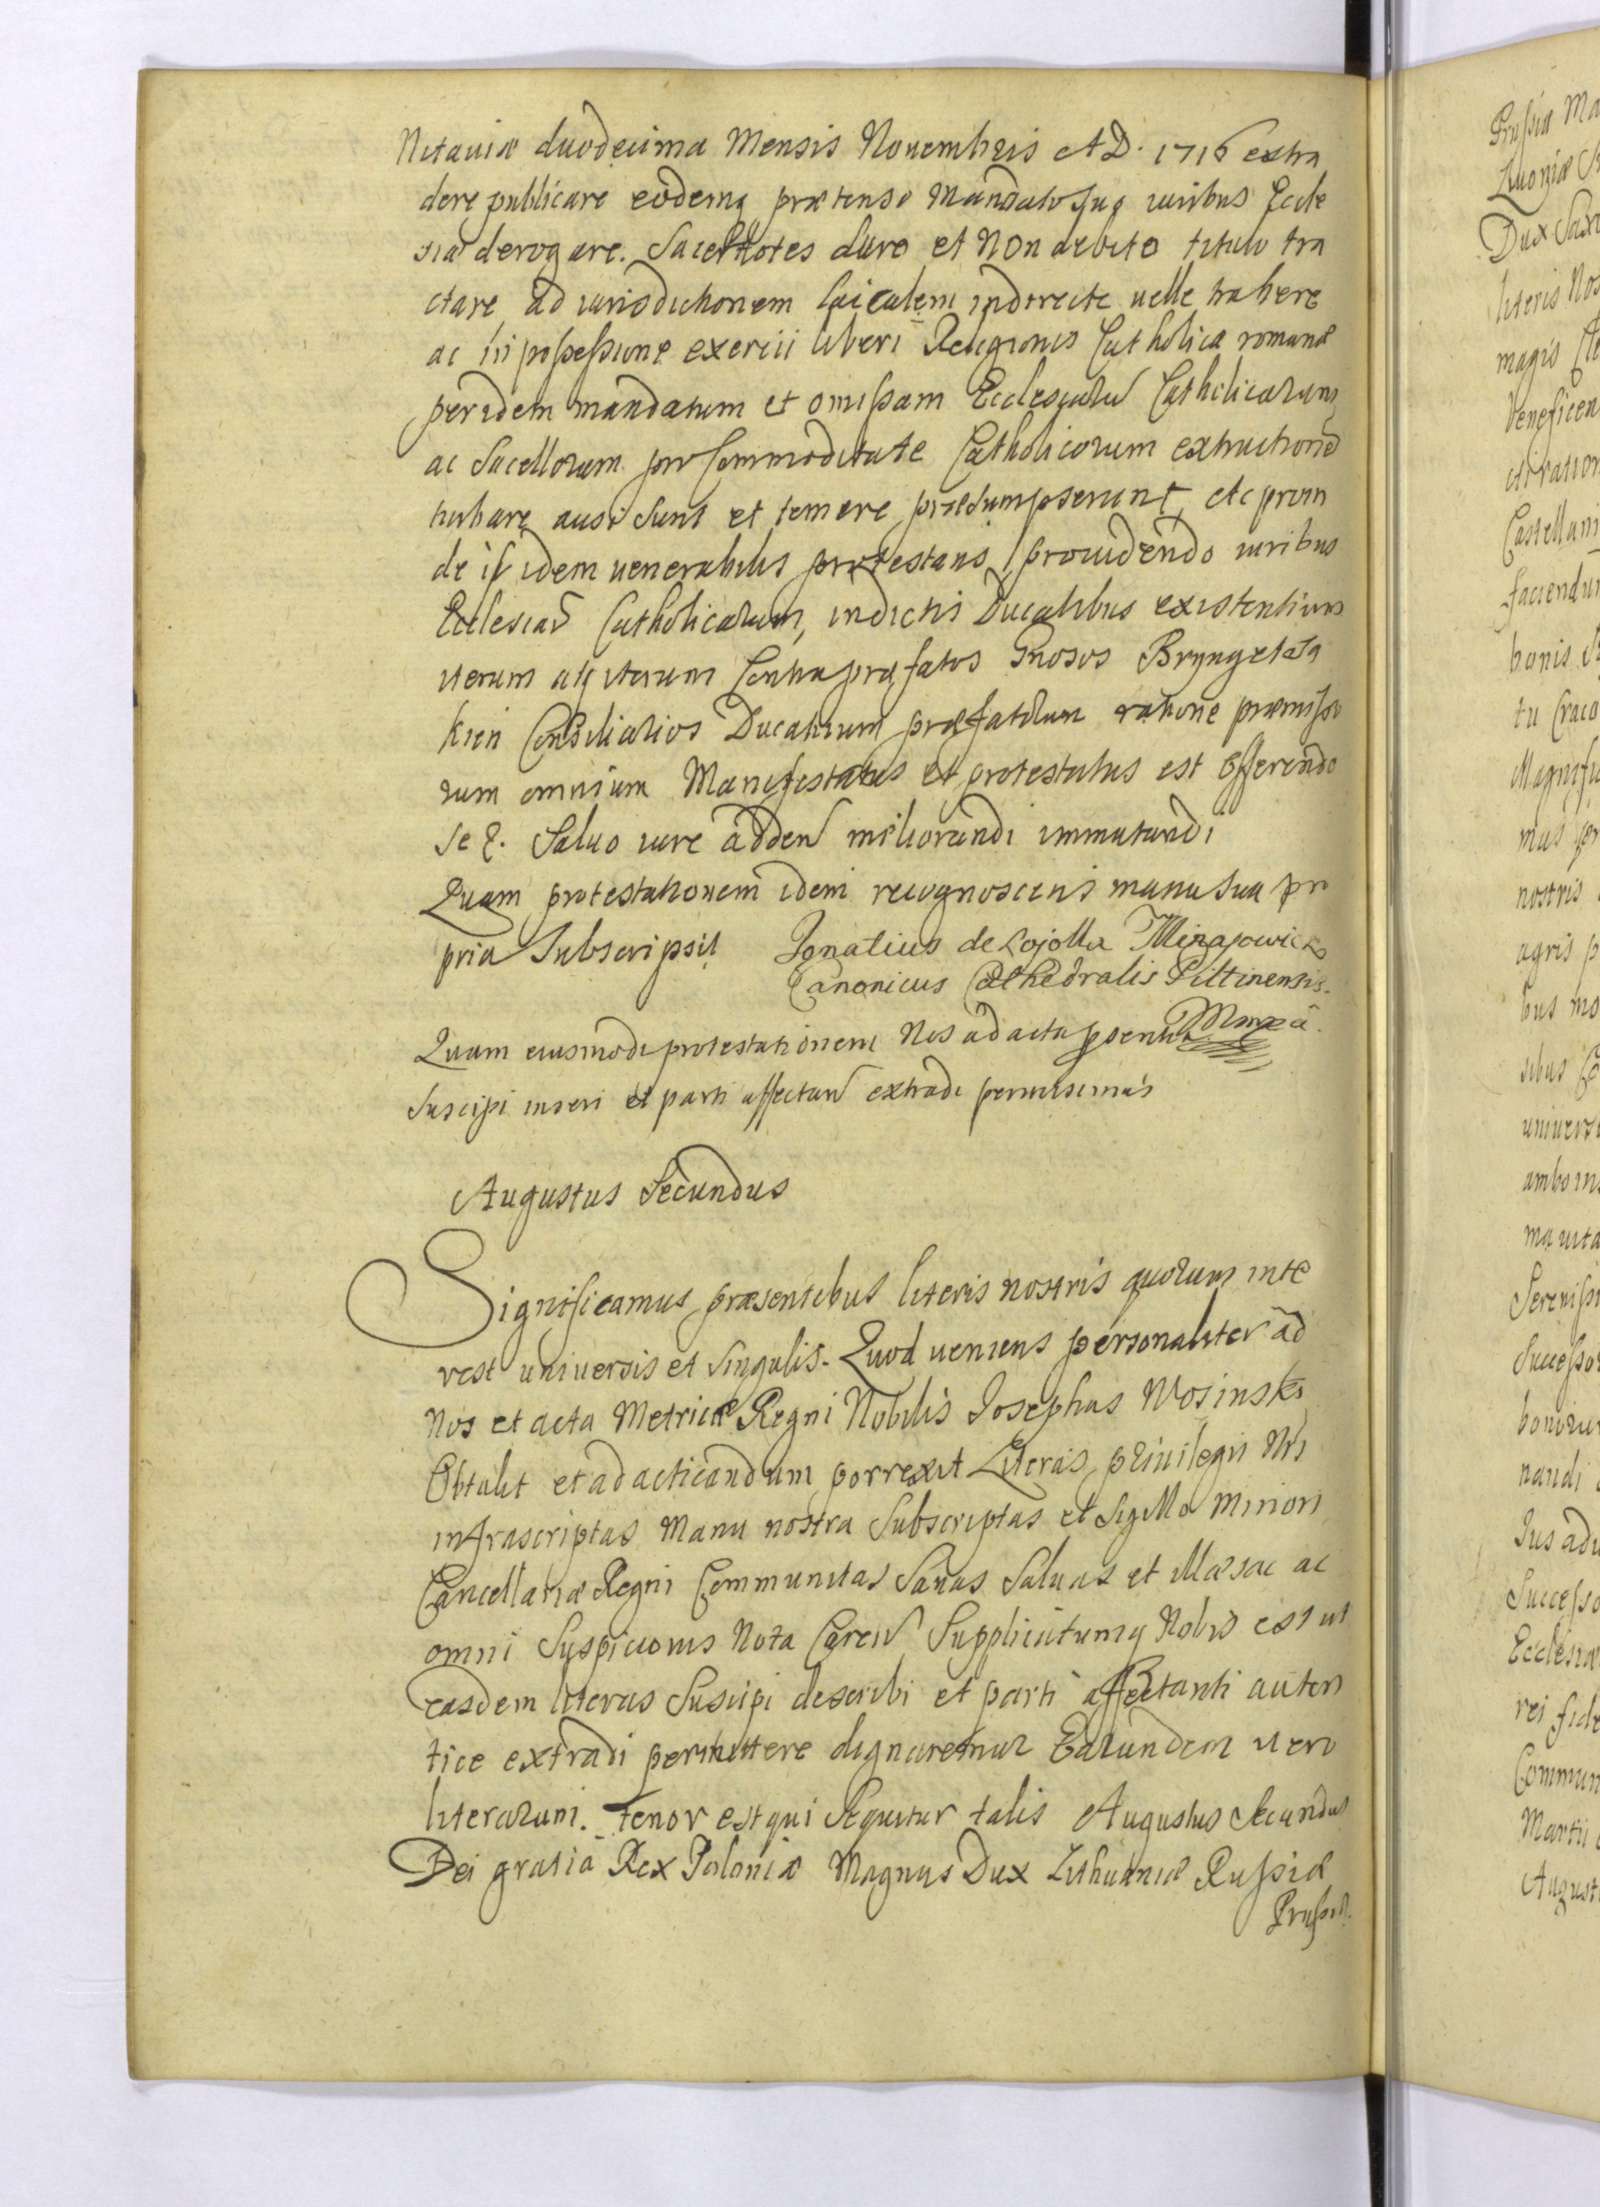 Mitaviæ duodecima Mensis Novembris AD. 1716 extra
dere publicare eodemq prætenso Mandato suo iuribus Eccle
siæ derogare. Sacerdotes duro et non debito titulo tra
ctare ad iurisdictionem laicalem indirecte uelle trahere
ac in possessione exercii liberi Religionis Catholicæ romanæ
per idem mandatum et omissam Ecclesiaru Catholicarum
ac Sacellorum pro Commoditate Catholicorum extructione
turbare ausi sunt et temere præsumpserunt, Ac proin
de is idem uenerabilis protestans prouidendo iuribus
Ecclesiar Catholicarum, in dictis Ducatibus existentium
iterum atq iterum Contra præfatos Gnosos Bryngk et
kien Consiliarios Ducatuum præfatorum ratione præmisso
rum omnium Manifestatus et protestatus est Offerendo
se &. Saluo iure adden meliorandi immutandi
Quam protestationem idem recognoscens manu sua pro
pria Subscripsit Ignatius de Lojolla
Canonicus Cathedralis Piltinensis.
Quam eiusmodi protestationem Nos ad acta pnentia Mppa.
Suscipi inseri et parti affectan extradi permisimus
Augustus Secundus
Significamus præsentibus literis nostris quorum inte
rest universis et singulis. Quod ueniens personaliter ad
Nos et acta Metricæ Regni Nobilis Josephus Wosinski
Obtulit et ad acticandum porrexit Literas priuilegii Nri
infrascriptas Manu nostra Subscriptas et Sigillo Minori
Cancellariæ Regni Communitas Sanas Saluas et illæsas ac
omni Suspicionis Nota Caren Supplicatumq Nobis est ut
easdem literas Suscipi describi et parti affectanti auten
tice extradi permittere dignaremur Earundem uero
literarum. tenor est qui sequitur talis Augustus Secundus
Dei gratia Rex Poloniæ Magnus Dux Lithuaniæ Russiæ
Prussiæ.
Prussiæ Ma
Liuoniæ
Dux Saxo
literis Nos
magis
Veneficen
ratio
Castellani
faciendu
bonis
tu Craco
Magnifi
mus
nostris
agris p
bus mo
sibus
uniuers
ambo in
ma uita
Serenissi
Successo
bonoru
nandi
Jus adu
Successo
Ecclesiæ
rei fide
Commun
Martii
August